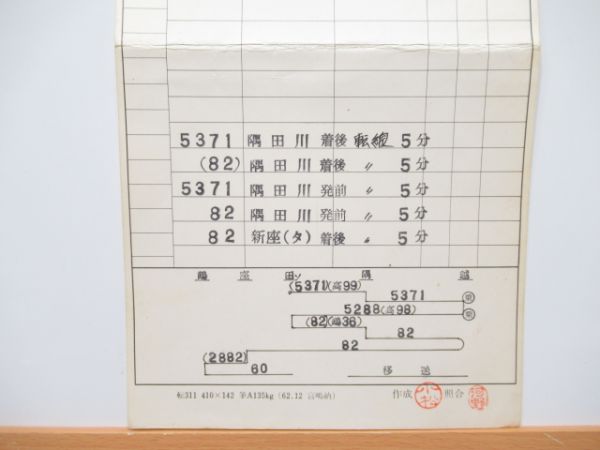 5371 隅田川 着後 転線 5分
(82) 隅田川 着後 〃 5分
5371 隅田川 発前 〃 5分
82 隅田川 発前 〃 5分
82 新座(タ) 着後 〃 5分
座 田ソ 隅 越
(5371)(高99)
5371
5288(高98)
(82)
36)
82
82
(2882)
60
移送
転311 410×142 筆A135kg (62.12 高崎納)
作成 小松 照合 河野